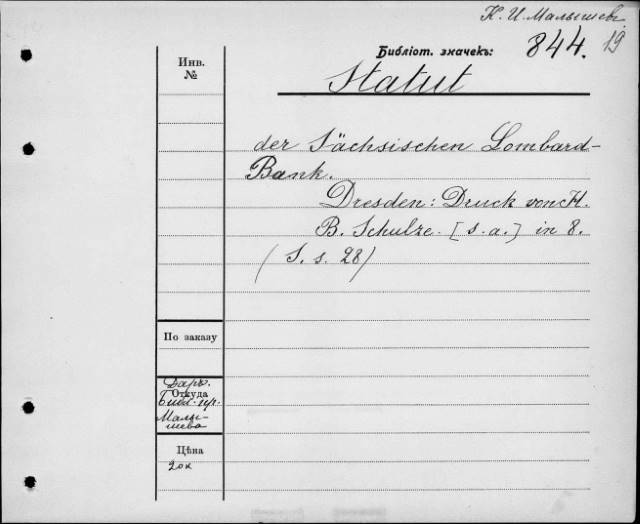 К. И. Малышев.
Библіот. значекъ: 844. 19
Инв.
№
Statut
der Sächsischen Lombard-
Bank.
Dresden: Druck von H.
B. Schulze. [s. a.] in 8.
(S. s. 28)
По заказу
Даръ.
Откуда
Библ. пр.
Малы-
шева
Цѣна
20к